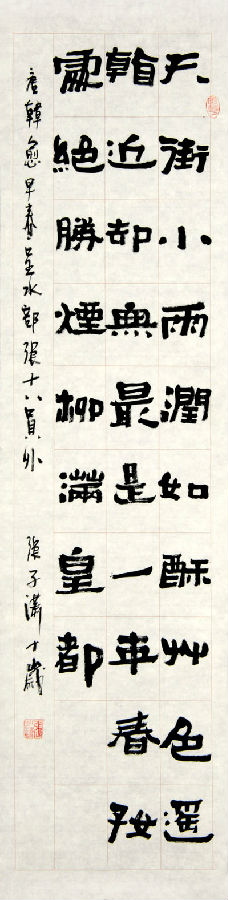 天街小雨潤如酥艸色遥
看近却無最是一年春好
處絕勝煙柳滿皇都
唐韓愈早春呈水部張十八員外 張子瀟十歲